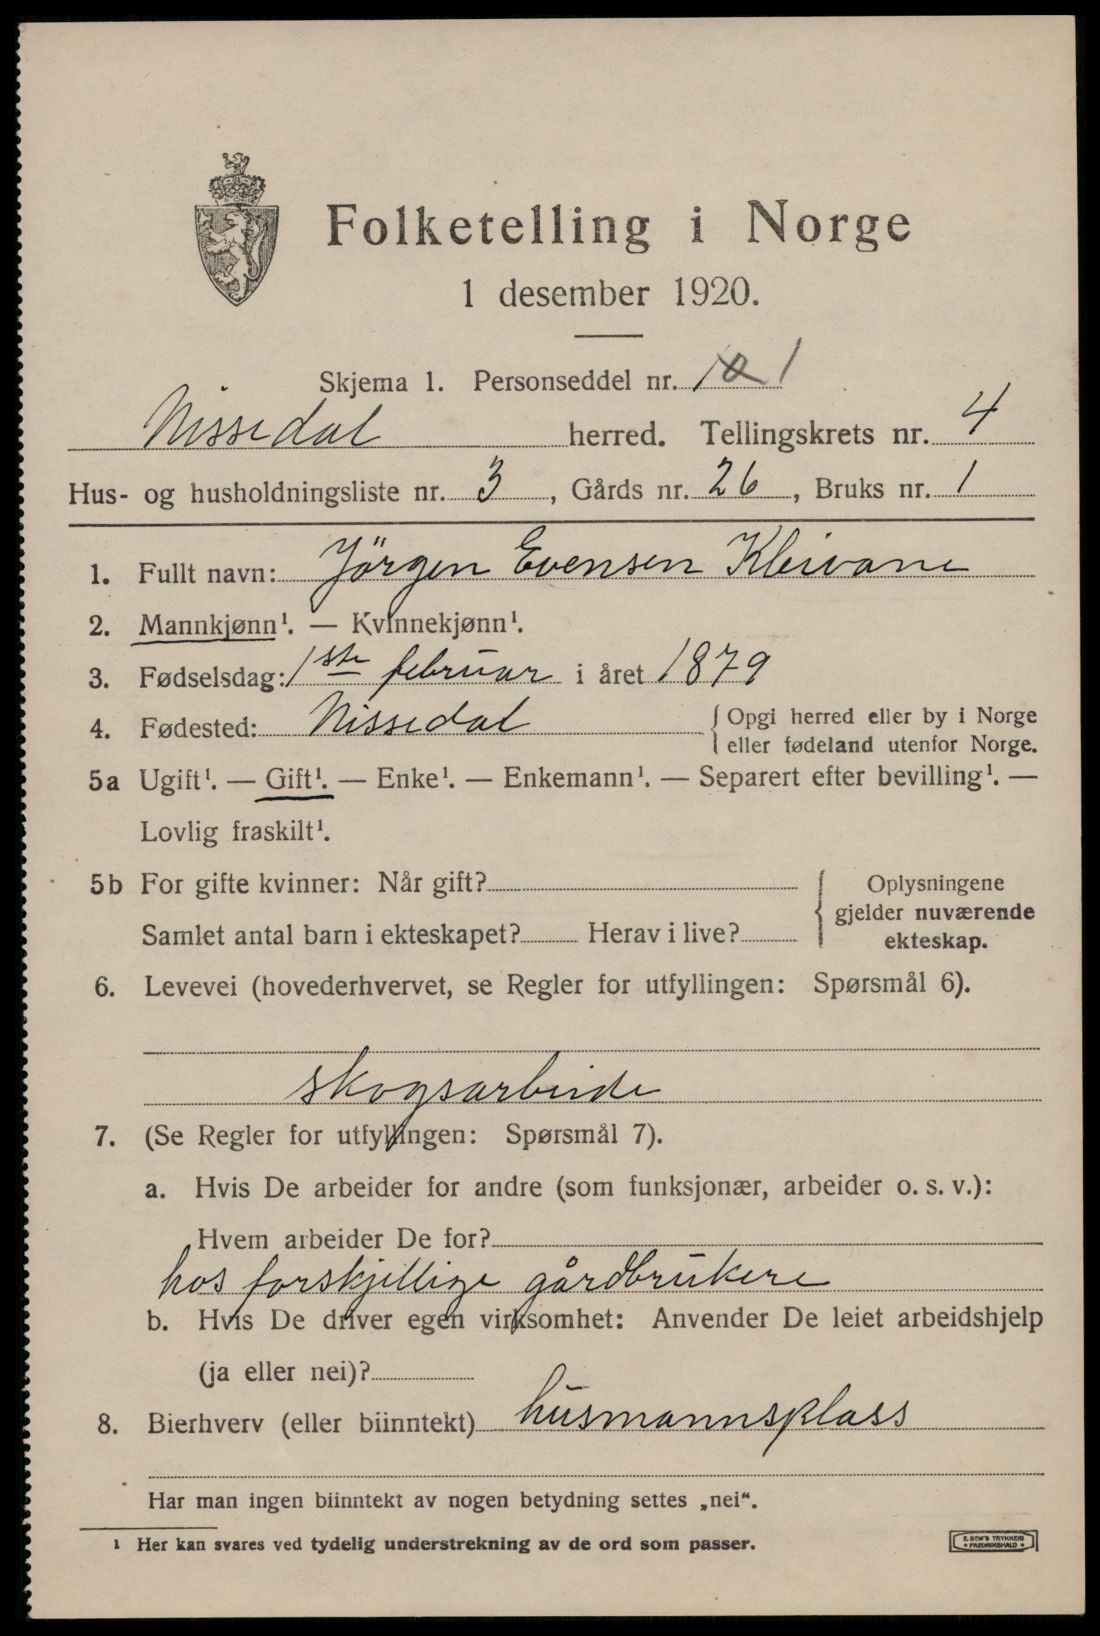 Folketelling i Norge
1 desember 1920.
Skjema 1. Personseddel nr. 1
Nissedal herred. Tellingskrets nr. 4
Hus- og husholdningsliste nr. 3, Gårds nr. 26, Bruks nr. 1
1. Fullt navn: Jörgen Evensen Kleivane
2. Mannkjønn¹. — Kvinnekjønn¹.
3. Fødselsdag: 1ste februar i året 1879
4. Fødested: Nissedal { Opgi herred eller by i Norge
eller fødeland utenfor Norge.
5a Ugift¹. — Gift¹. — Enke¹. — Enkemann¹. — Separert efter bevilling¹. —
Lovlig fraskilt¹.
5b For gifte kvinner: Når gift? { Oplysningene
gjelder nuværende
Samlet antal barn i ekteskapet? Herav i live? ekteskap.
6. Levevei (hovederhvervet, se Regler for utfyllingen: Spørsmål 6).
skogsarbeide
7. (Se Regler for utfyllingen: Spørsmål 7).
a. Hvis De arbeider for andre (som funksjonær, arbeider o. s. v.):
Hvem arbeider De for?
hos forskjellige gårdbrukere
b. Hvis De driver egen virksomhet: Anvender De leiet arbeidshjelp
(ja eller nei)?
8. Bierhverv (eller biinntekt) husmannsplass
Har man ingen biinntekt av nogen betydning settes „nei“.
¹ Her kan svares ved tydelig understrekning av de ord som passer.
E. SEM'S TRYKKERI
• FREDRIKSHALD •